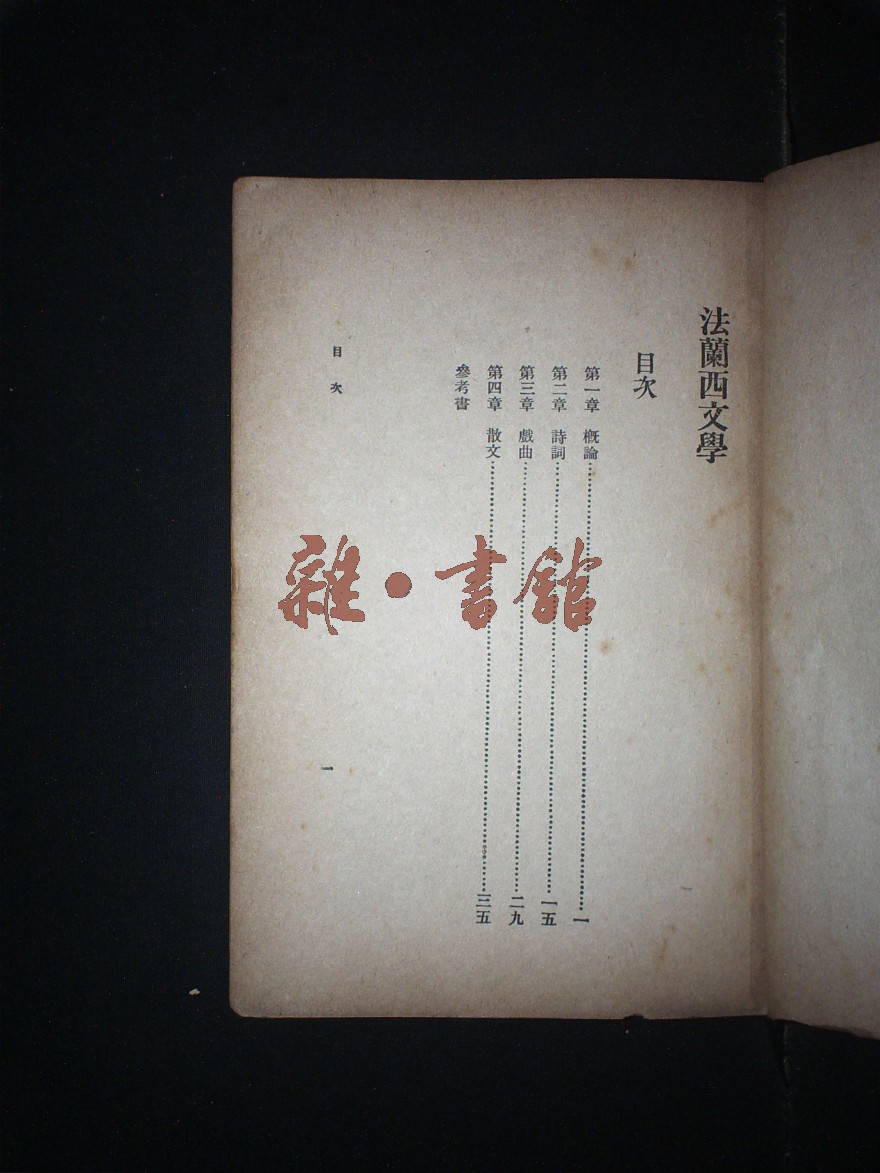 法蘭西文學
目次
第一章 概論……一
第二章 詩詞……一五
第三章 戲曲……二九
第四章 散文……三五
參考書
目次
一
雜·書館